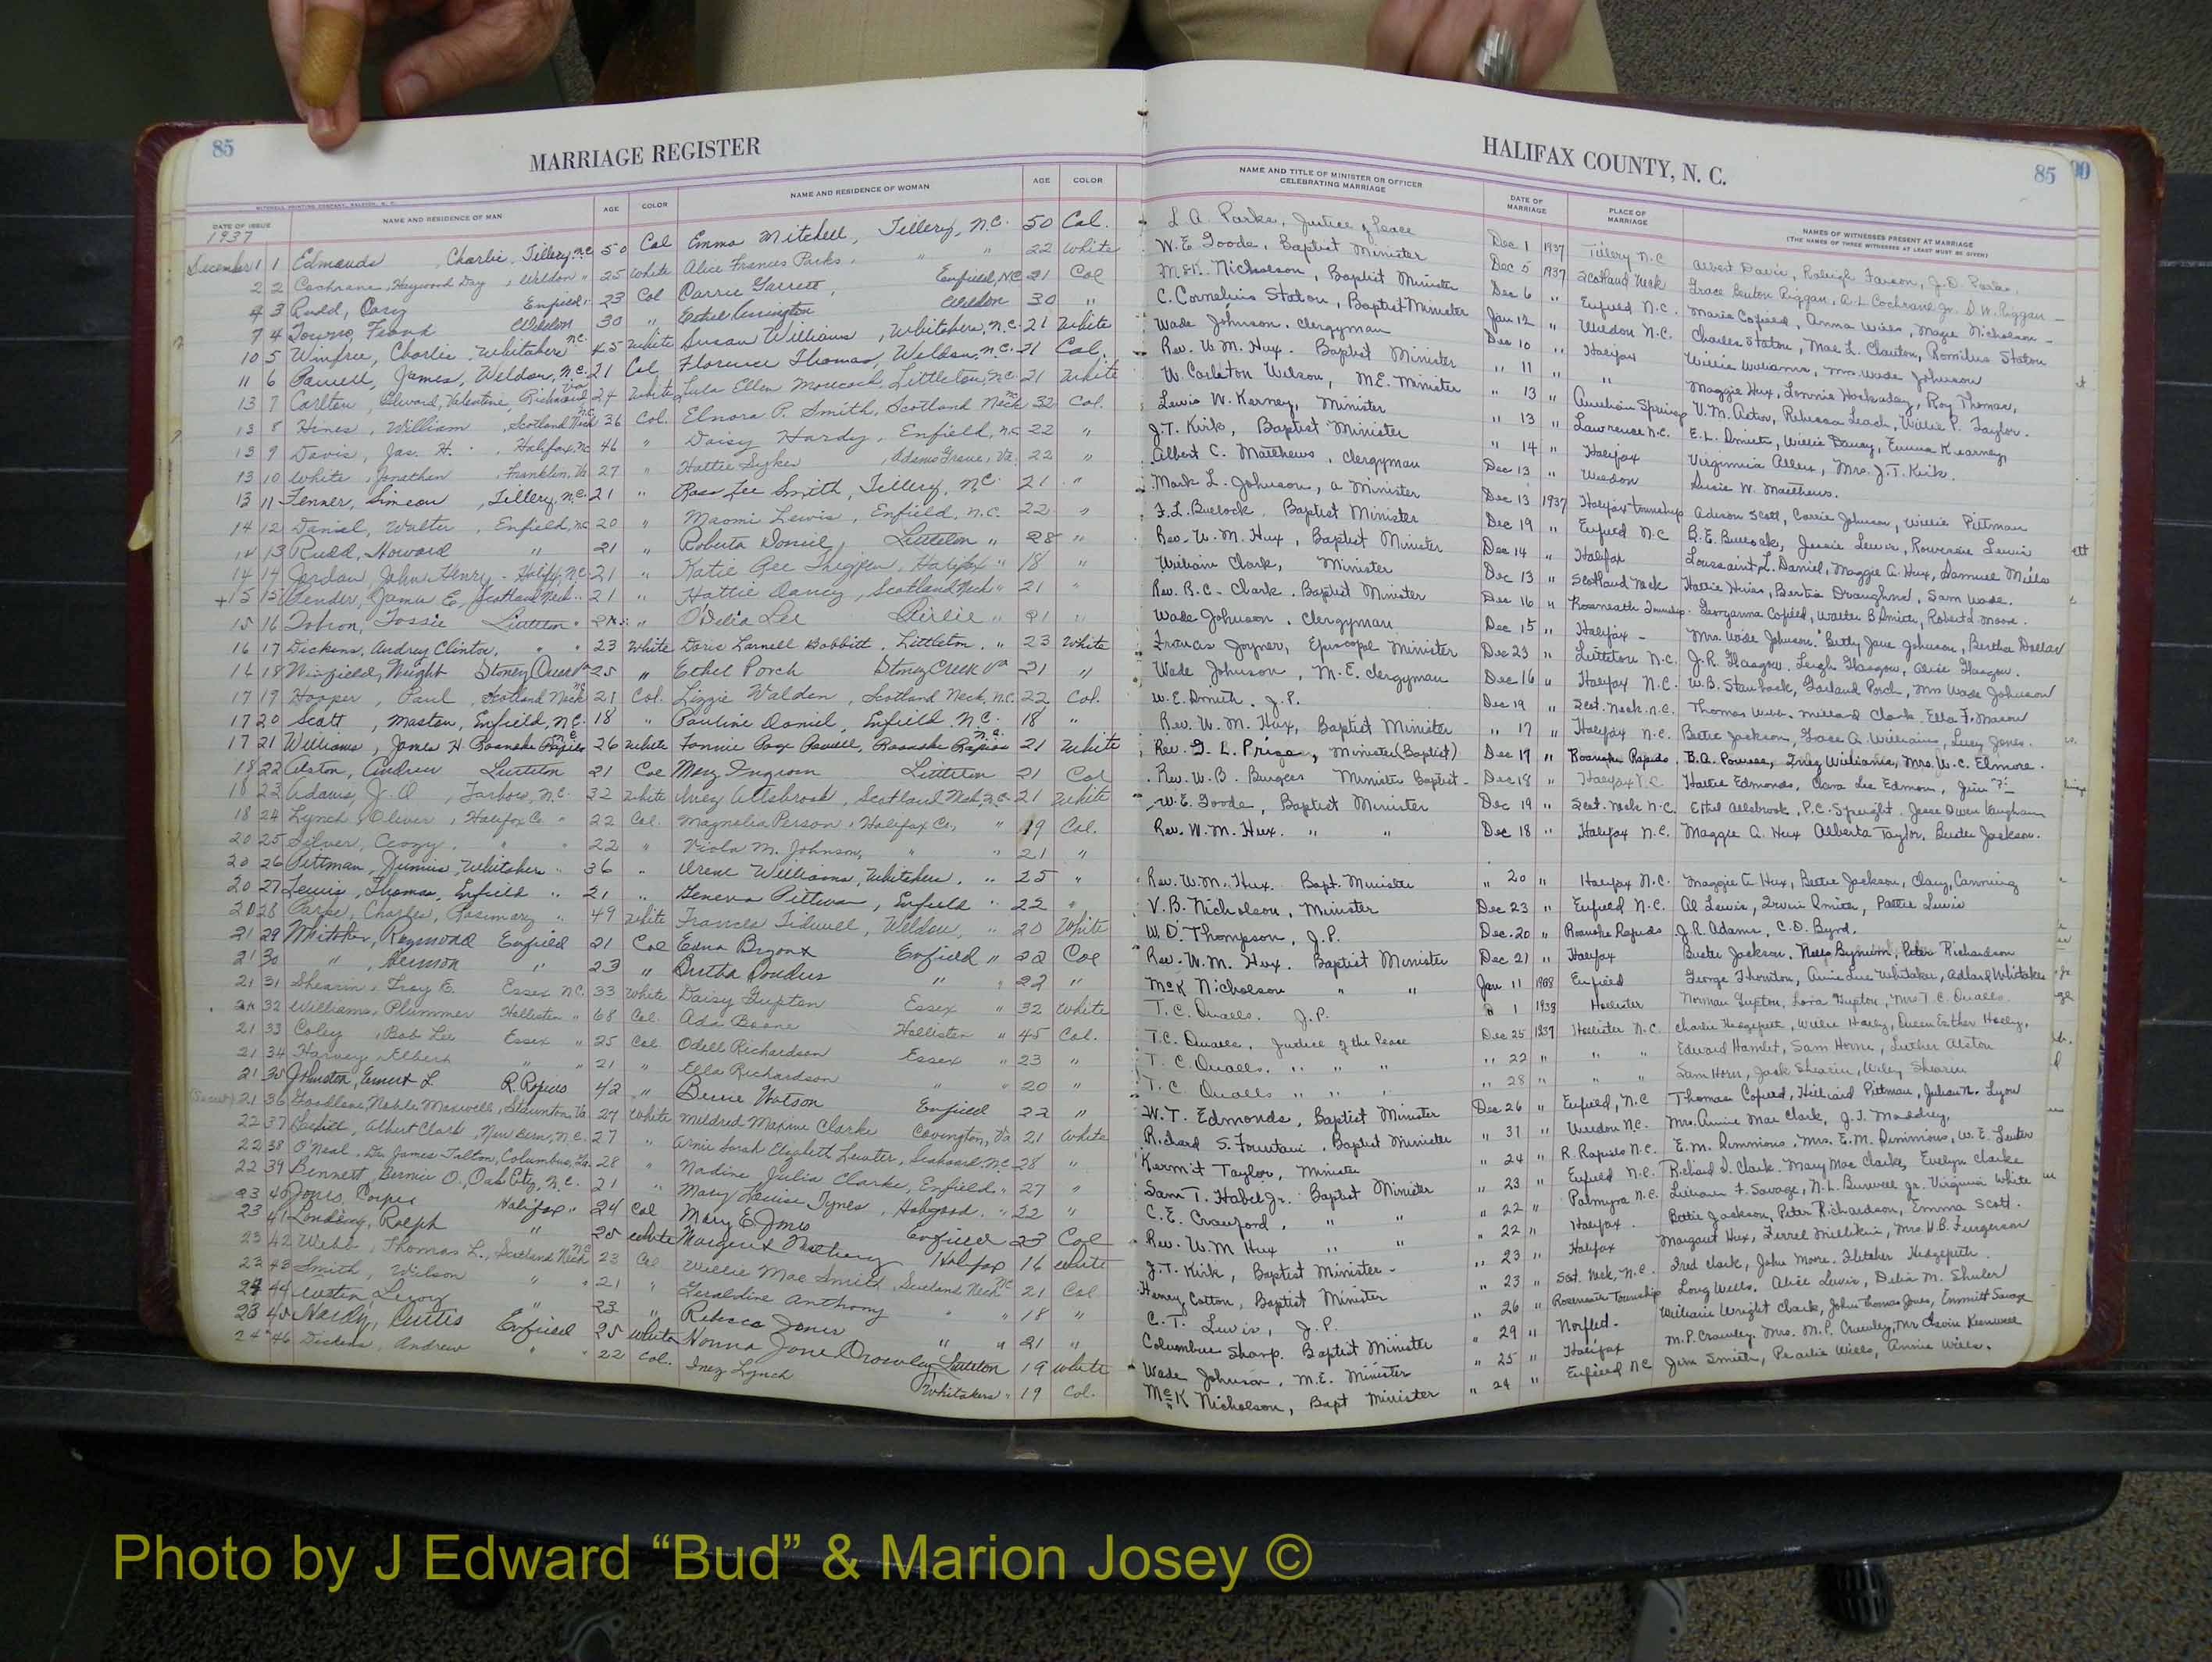 85
MARRIAGE REGISTER
MITCHELL PRINTING COMPANY, RALEIGH, N. C.
DATE OF ISSUE NAME AND RESIDENCE OF MAN AGE COLOR NAME AND RESIDENCE OF WOMAN AGE COLOR
1937
December 1 1 Edmonds, Charlie, Tillery, N.C. 50 Col Emma Mitchell, Tillery, N.C. 50 Col.
2 2 Cochrane, Haywood Day, Weldon " 25 White Alice Frances Parks, " " 22 White
4 3 Rudd, Enfield " 23 Col Carrie Garrett, Enfield, N.C. 21 Col
7 4 Frank Weldon 30 " Ethel Weldon 30 "
10 5 Winfree, Charlie, Whitakers N.C. 45 White Susan Williams, Whitakers, N.C. 21 White
11 6 Powell, James, Weldon, N.C. 21 Col Florence Thomas, Weldon, N.C. 21 Col.
13 7 Carlton, Edward, Valentine, Richmond Va 24 White Lula Ellen Littleton, N.C. 21 White
13 8 Hines, William, Scotland Neck N.C. 36 Col. Elnora P. Smith, Scotland Neck N.C. 32 Col.
13 9 Davis, Jas. H., Halifax, N.C. 46 " Daisy Hardy, Enfield, N.C. 22 "
13 10 White, Jonathan Franklin, Va 27 " Hattie Sykes, Adams Grove, Va. 22 "
13 11 Fenner, Simeon, Tillery, N.C. 21 " Rosa Lee Smith, Tillery, N.C. 21 "
14 12 Daniel, Walter, Enfield, N.C. 20 " Naomi Lewis, Enfield, N.C. 22 "
14 13 Rudd, Howard " 21 " Roberta Littleton " 28 "
14 14 Jordan, John Henry - Halifax, N.C. 21 " Katie Bee Halifax " 18 "
+15 15 Pender, James E, Scotland Neck " 21 " Hattie Dancy, Scotland Neck " 21 "
15 16 Tossie Littleton " " O'Delia Lee Airlie " 21 "
16 17 Dickens, Audrey Clinton, " " 23 White Doris Larnell Bobbitt, Littleton, " 23 White
16 18 Winfield, Wright Stoney Creek Va 25 " Ethel Porch Stoney Creek Va 21 "
17 19 Hopper, Paul, Scotland Neck N.C. 21 Col. Lizzie Walden, Scotland Neck, N.C. 22 Col.
17 20 Scott, Maston, Enfield, N.C. 18 " Pauline Daniel, Enfield, N.C. 18 "
17 21 Williams, James H. Roanoke Rapids N.C. 26 White Fannie Powell, Roanoke Rapids N.C. 21 White
18 22 Alston, Andrew Littleton 21 Col Mary Ingram Littleton 21 Col
18 23 Adams, J. O, Tarboro, N.C. 32 White Allsbrook, Scotland Neck, N.C. 21 White
18 24 Lynch, Oliver, Halifax Co. " 22 Col. Magnolia Person, Halifax Co., " 19 Col.
20 25 Silver, " " 22 " Viola M. Johnson, " " 21 "
20 26 Pittman, Junius, Whitakers " 36 " Irene Williams, Whitakers, " 25 "
20 27 Lewis, Thomas, Enfield " 21 " Geneva Pittman, Enfield " 22 "
20 28 Charles, Rosemary " 49 White Frances Tidwell, Weldon, " 20 White
21 29 Whitaker, Raymond Enfield 21 Col Edna Bryant Enfield " 22 Col
21 30 " , Vernon " 23 " Bertha " " 22 "
21 31 Shearin, Troy E. Essex N.C. 33 White Daisy Gupton Essex " 32 White
21 32 Williams, Plummer Hollister " 68 Col. Ada Boone Hollister " 45 Col.
21 33 Coley, Bob Lee Essex " 25 Col Odell Richardson Essex " 23 "
21 34 Harvey, Elbert " " 21 " Ella Richardson " " 20 "
21 35 Johnston, Ernest L. R. Rapids 42 " Bessie Watson Enfield 22 "
21 36 Goodloe, Noble Maxwell, Staunton, Va. 27 White Mildred Maxine Clarke Covington, Va 21 White
22 37 Albert Clark, New Bern, N.C. 27 " Annie Sarah Elizabeth Seaboard, N.C. 28 "
22 38 O'Neal, Dr. James Talton, Columbus, Ga. 28 " Nadine Julia Clarke, Enfield, " 27 "
22 39 Bennett, Bernice O., Oak City, N.C. 21 " Mary Louise Tynes, Hobgood, " 22 "
23 40 Jones, Halifax " 24 Col Mary E. Jones Enfield 23 Col
23 41 Ralph " 25 White Margaret Halifax 16 White
23 42 Webb, Thomas L., Scotland Neck N.C. 23 Col Willie Mae Smith, Scotland Neck N.C. 21 Col
23 43 Smith, Wilson " " 21 " Geraldine Anthony " " 18 "
24 44 Leroy " 23 " Rebecca Jones " " 21 "
23 45 Hardy, Curtis Enfield 25 White Nonna Jane Crowley Littleton 19 White
24 46 Dickens, Andrew " " 22 Col. Inez Lynch Whitakers " 19 Col.
HALIFAX COUNTY, N. C.
85
90
NAME AND TITLE OF MINISTER OR OFFICER CELEBRATING MARRIAGE DATE OF MARRIAGE PLACE OF MARRIAGE NAMES OF WITNESSES PRESENT AT MARRIAGE (THE NAMES OF THREE WITNESSES AT LEAST MUST BE GIVEN)
L. A. Parks, Justice of Peace Dec 1 1937 Tillery N.C Albert Davis, Raleigh Faison, J.D. Parks.
W. E. Goode, Baptist Minister Dec 5 1937 Scotland Neck Grace Riggan, A.L. Cochrane, Jr. D.W. Riggan
McK. Nicholson, Baptist Minister Dec 6 " Enfield N.C. Marie Cofield, Anna Wills, Magie Nicholson
C. Cornelius Staton, Baptist Minister Jan 12 " Weldon N.C. Charles Staton, Mae L. Clanton, Romulus Staton
Wade Johnson, Clergyman Dec 10 " Halifax Willie Williams, Mrs. Wade Johnson
Rev. W. M. Hux. Baptist Minister " 11 " " Maggie Hux, Lonnie Hockaday, Roy Thomas,
W. Carleton Wilson, M.E. Minister " 13 " Aurelian Springs V.M. Aston, Rebecca Leach, Willie P. Taylor.
Lewis W. Kerney, Minister " 13 " Lawrence N.C. E.L. Smith, Willie Dancy, Emma Kearney
J.T. Kirk, Baptist Minister " 14 " Halifax Virginia Allen, Mrs. J.T. Kirk.
Albert C. Matthews, Clergyman Dec 13 " Weldon Susie W. Matthews.
Mark L. Johnson, a Minister Dec 13 1937 Halifax township Adison Scott, Carrie Johnson, Willie Pittman
F. L. Bullock, Baptist Minister Dec 19 " Enfield N.C B.E. Bullock, Jessie Lewis, Lewis
Rev. W. M. Hux, Baptist Minister Dec 14 " Halifax Toussaint L. Daniel, Maggie A. Hux, Samuel Mills
William Clark, Minister Dec 13 " Scotland Neck Hattie Hines, Bertie Draughnd, Sam Wade.
Rev. B. C. Clark. Baptist Minister Dec 16 " Roseneath Township Georganna Cofield, Walter B. Smith, Robert Moore.
Wade Johnson. Clergyman Dec 15 " Halifax - Mrs. Wade Johnson. Betty Jane Johnson, Bertha Dollar
Francis Joyner, Episcopal Minister Dec 23 " Littleton N.C. J.R. Glasgow. Leigh Glasgow, Alice Glasgow.
Wade Johnson, M.E. Clergyman Dec 16 " Halifax N.C. W.B. Stainback, Garland Porch, Mrs Wade Johnson
W. E. Smith. J.P. Dec 19 " Scot. Neck. N.C. Thomas Webb. Millard Clark. Ella F. Mason
Rev. W. M. Hux, Baptist Minister " 17 " Halifax N.C. Bettie Jackson, Grace A. Williams, Lucy Jones.
Rev. G. L. Price, Minister (Baptist) Dec 17 " Roanoke Rapids. B.A. Powell, Inez Williams, Mrs. W.C. Elmore.
Rev. W. B. Burgess Minister Baptist - Dec 18 " Halifax N.C. Hattie Edmonds, Clara Lee Edmon, Jim
W. E. Goode, Baptist Minister Dec 19 " Scot. Neck N.C. Ethel Allsbrook, P.C. Speight. Jesse Owen Vaughan
Rev. W. M. Hux. " " Dec 18 " Halifax N.C. Maggie A. Hux Alberta Taylor, Bettie Jackson.
Rev. W. M. Hux. Bapt. Minister " 20 " Halifax N.C. Maggie A. Hux, Bettie Jackson, Clary Canning
V. B. Nicholson, Minister Dec 23 " Enfield N.C. Al Lewis, Irvin Smith, Pattie Lewis
W. D. Thompson, J.P. Dec. 20 " Roanoke Rapids J.R. Adams, C.D. Byrd.
Rev. W. M. Hux. Baptist Minister Dec 21 " Halifax Bettie Jackson. Peter Richardson
McK Nicholson " " Jan 11 1938 Enfield George Thornton, Annie Lue Whitaker, Adlard Whitaker
T. C. Qualls. J.P. " 1 1938 Hollister Norman Gupton, Lora Gupton, Mrs T.C. Qualls.
T. C. Qualls. Justice of the Peace Dec 25 1937 Hollister N.C. Charlie Hedgepeth, Willie Harvey, Queen Esther Harvey,
T. C. Qualls. " " " " 22 " " " Edward Hamlet, Sam Horne, Luther Alston
T. C Qualls " " " " 28 " " " Sam Horn, Jack Shearin, Wiley Shearin
W. T. Edmonds, Baptist Minister Dec 26 " Enfield, N.C Thomas Cofield, Hilliard Pittman, Julian N. Lyon
Richard S. Fountain, Baptist Minister " 31 " Weldon N.C. Mrs. Annie Mae Clark, J.T. Maddrey,
Kermit Taylor, Minister " 24 " R. Rapids N.C. E.M. Dimmious. Mrs. E.M. Dimmious, W.E.
Sam T. Habel Jr. Baptist Minister " 23 " Enfield N.C. Richard D. Clark. Mary Mae Clarke, Evelyn Clarke
C. E. Crawford, " " " 22 " Palmyra N.C. Lillian F. Savage, N.L. Burwell Jr. Virginia White
Rev. W. M Hux " " " 22 " Halifax. Bettie Jackson, Peter Richardson, Emma Scott.
J. T. Kirk, Baptist Minister - " 23 " Halifax Margaret Hux, Ferrel Millikin, Mrs. W.B. Furgerson
Henry Cotton, Baptist Minister " 23 " Scot. Neck, N.C. Fred Clark, John Moore. Fletcher Hedgepeth.
C. T. Lewis, J.P. " 26 " Roseneath Township Long Wells. Alice Lewis, Delia M. Shuler
Columbus Sharp. Baptist Minister " 29 " Norfled - William Wright Clark, John Thomas Jones, Emmitt Savage
Wade Johnson, M.E. Minister " 25 " Halifax M.P. Crawley. Mrs. M.P. Crawley, Mr
McK Nicholson, Bapt Minister " 24 " Enfield NC Jim Smith, Pearlie Wills, Annie Wills.
Photo by J Edward “Bud” & Marion Josey ©